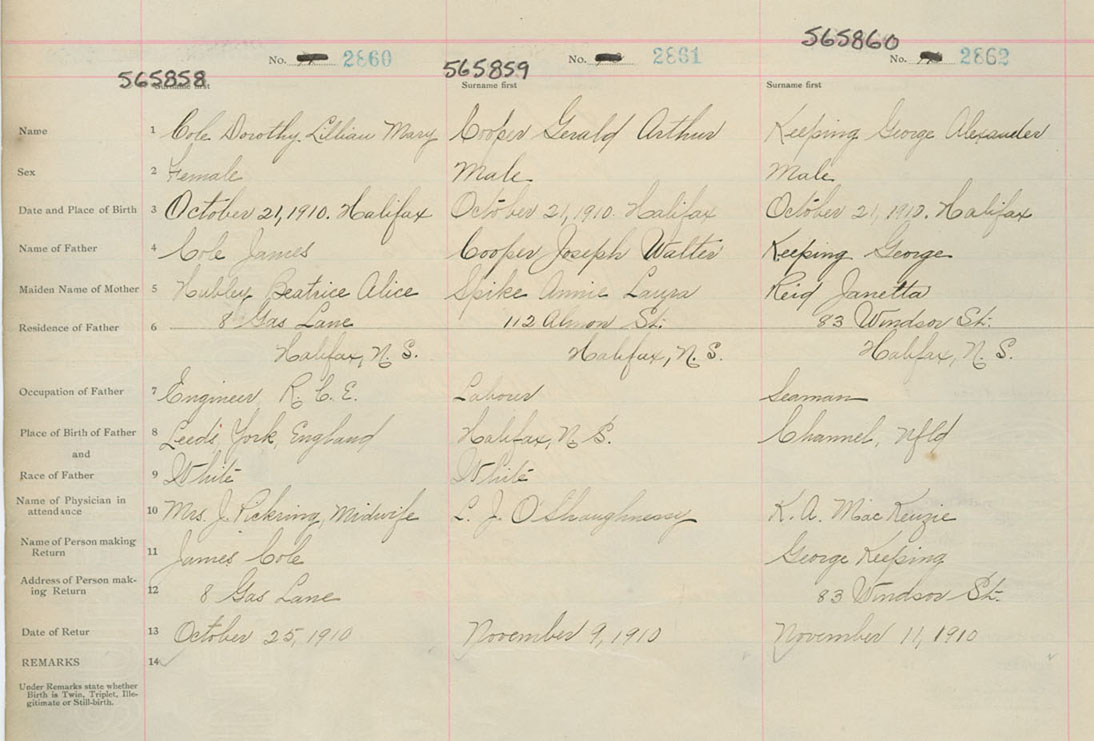 565860
No. 2860 No. 2861 No. 2862
565858 565859
Surname first Surname first Surname first
Name 1 Cole Dorothy Lillian Mary Cooper Gerald Arthur Keeping George Alexander
Sex 2 Female Male Male
Date and Place of Birth 3 October 21, 1910. Halifax October 21, 1910. Halifax October 21, 1910. Halifax
Name of Father 4 Cole James Cooper Joseph Walter Keeping George
Maiden Name of Mother 5 Hubley Beatrice Alice Spike Annie Laura Reid Janetta
Residence of Father 6 8 Gas Lane 112 Almon St. 83 Windsor St.
Halifax, N. S. Halifax, N. S. Halifax, N. S.
Occupation of Father 7 Engineer R. C. E. Labour Seaman
Place of Birth of Father 8 Leeds, York, England Halifax, N. S. Channel, Nfld
and
Race of Father 9 White White
Name of Physician in
attendance 10 Mrs. J. Pickring, Midwife L. J. O'Shaughnessy K. A. MacKenzie
Name of Person making
Return 11 James Cole George Keeping
Address of Person mak-
ing Return 12 8 Gas Lane 83 Windsor St.
Date of Retur 13 October 25, 1910 November 9, 1910 November 11, 1910
REMARKS 14
Under Remarks state whether
Birth is Twin, Triplet, Ille-
gitimate or Still-birth.